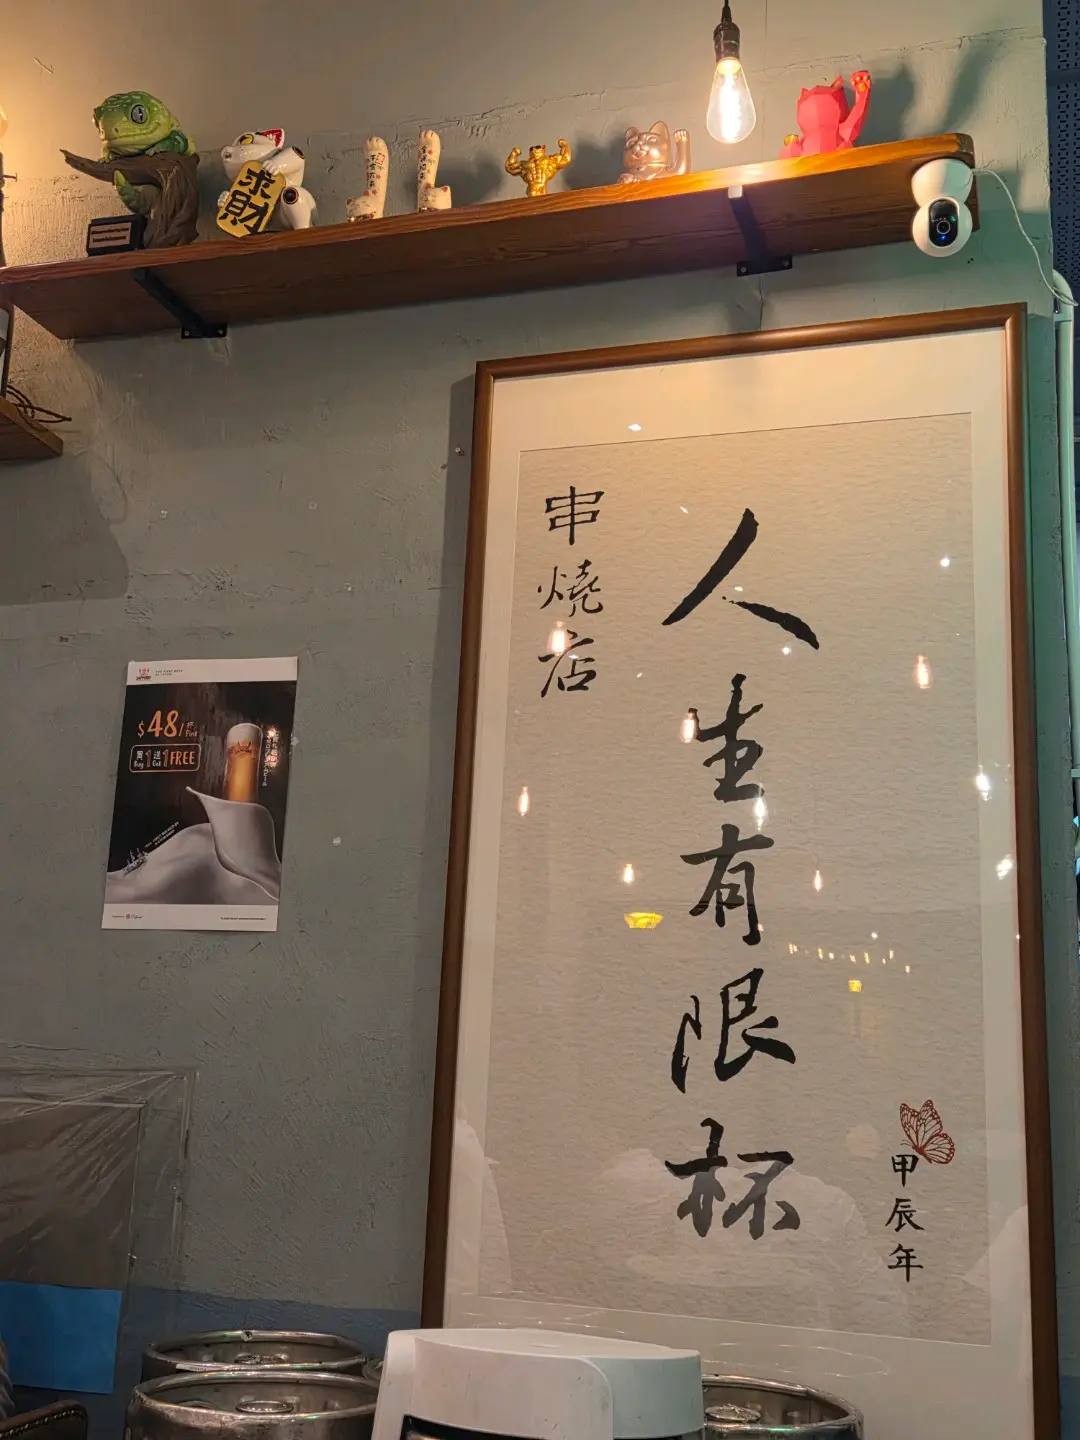 求財
人生有限杯
串燒店
甲辰年
$48/杯 Pint
買1送1 FREE
Buy Get